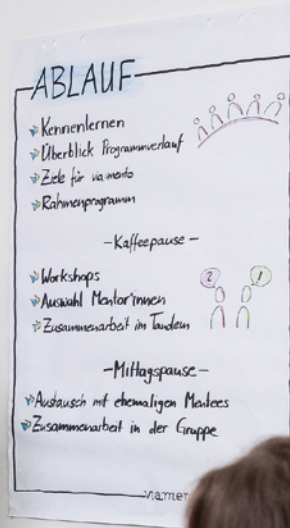 ABLAUF
Kennenlernen
Überblick Programmverlauf
Ziele für via mento
Rahmenprogramm
-Kaffeepause-
Workshops
Auswahl Mentor*innen
Zusammenarbeit im Tandem
? !
-Mittagspause-
Austausch mit ehemaligen Mentees
Zusammenarbeit in der Gruppe